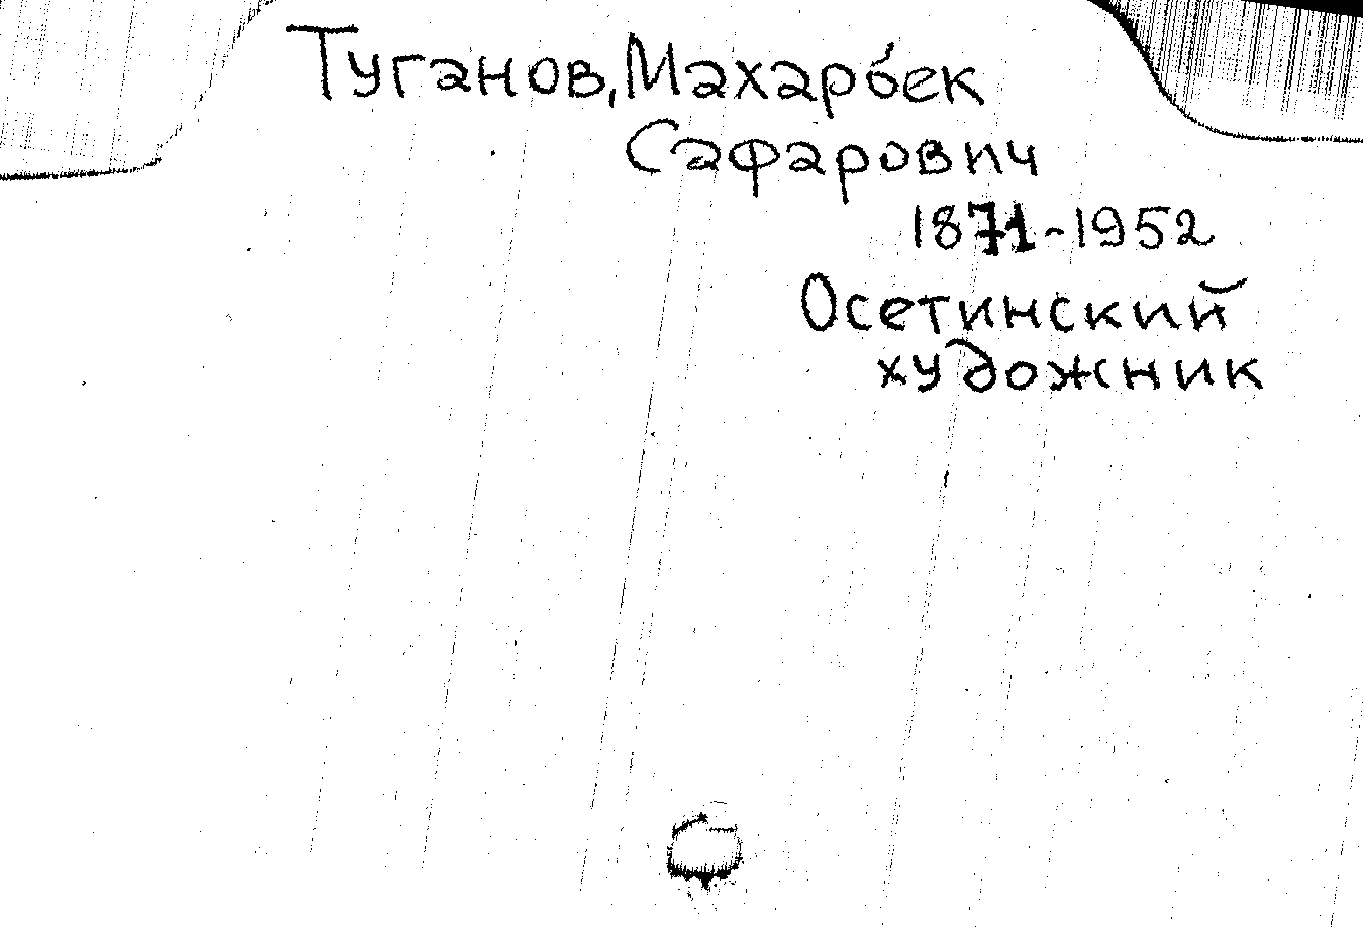 Туганов, Махарбек
Сафарович
1871-1952
Осетинский
художник